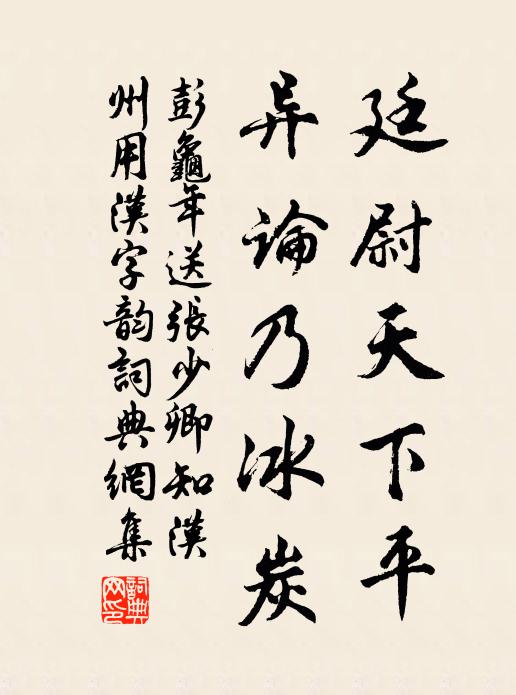 廷尉天下平
异論乃冰炭
彭龜年送張少卿知漢
州用漢字韵詞典網集
詞典網印